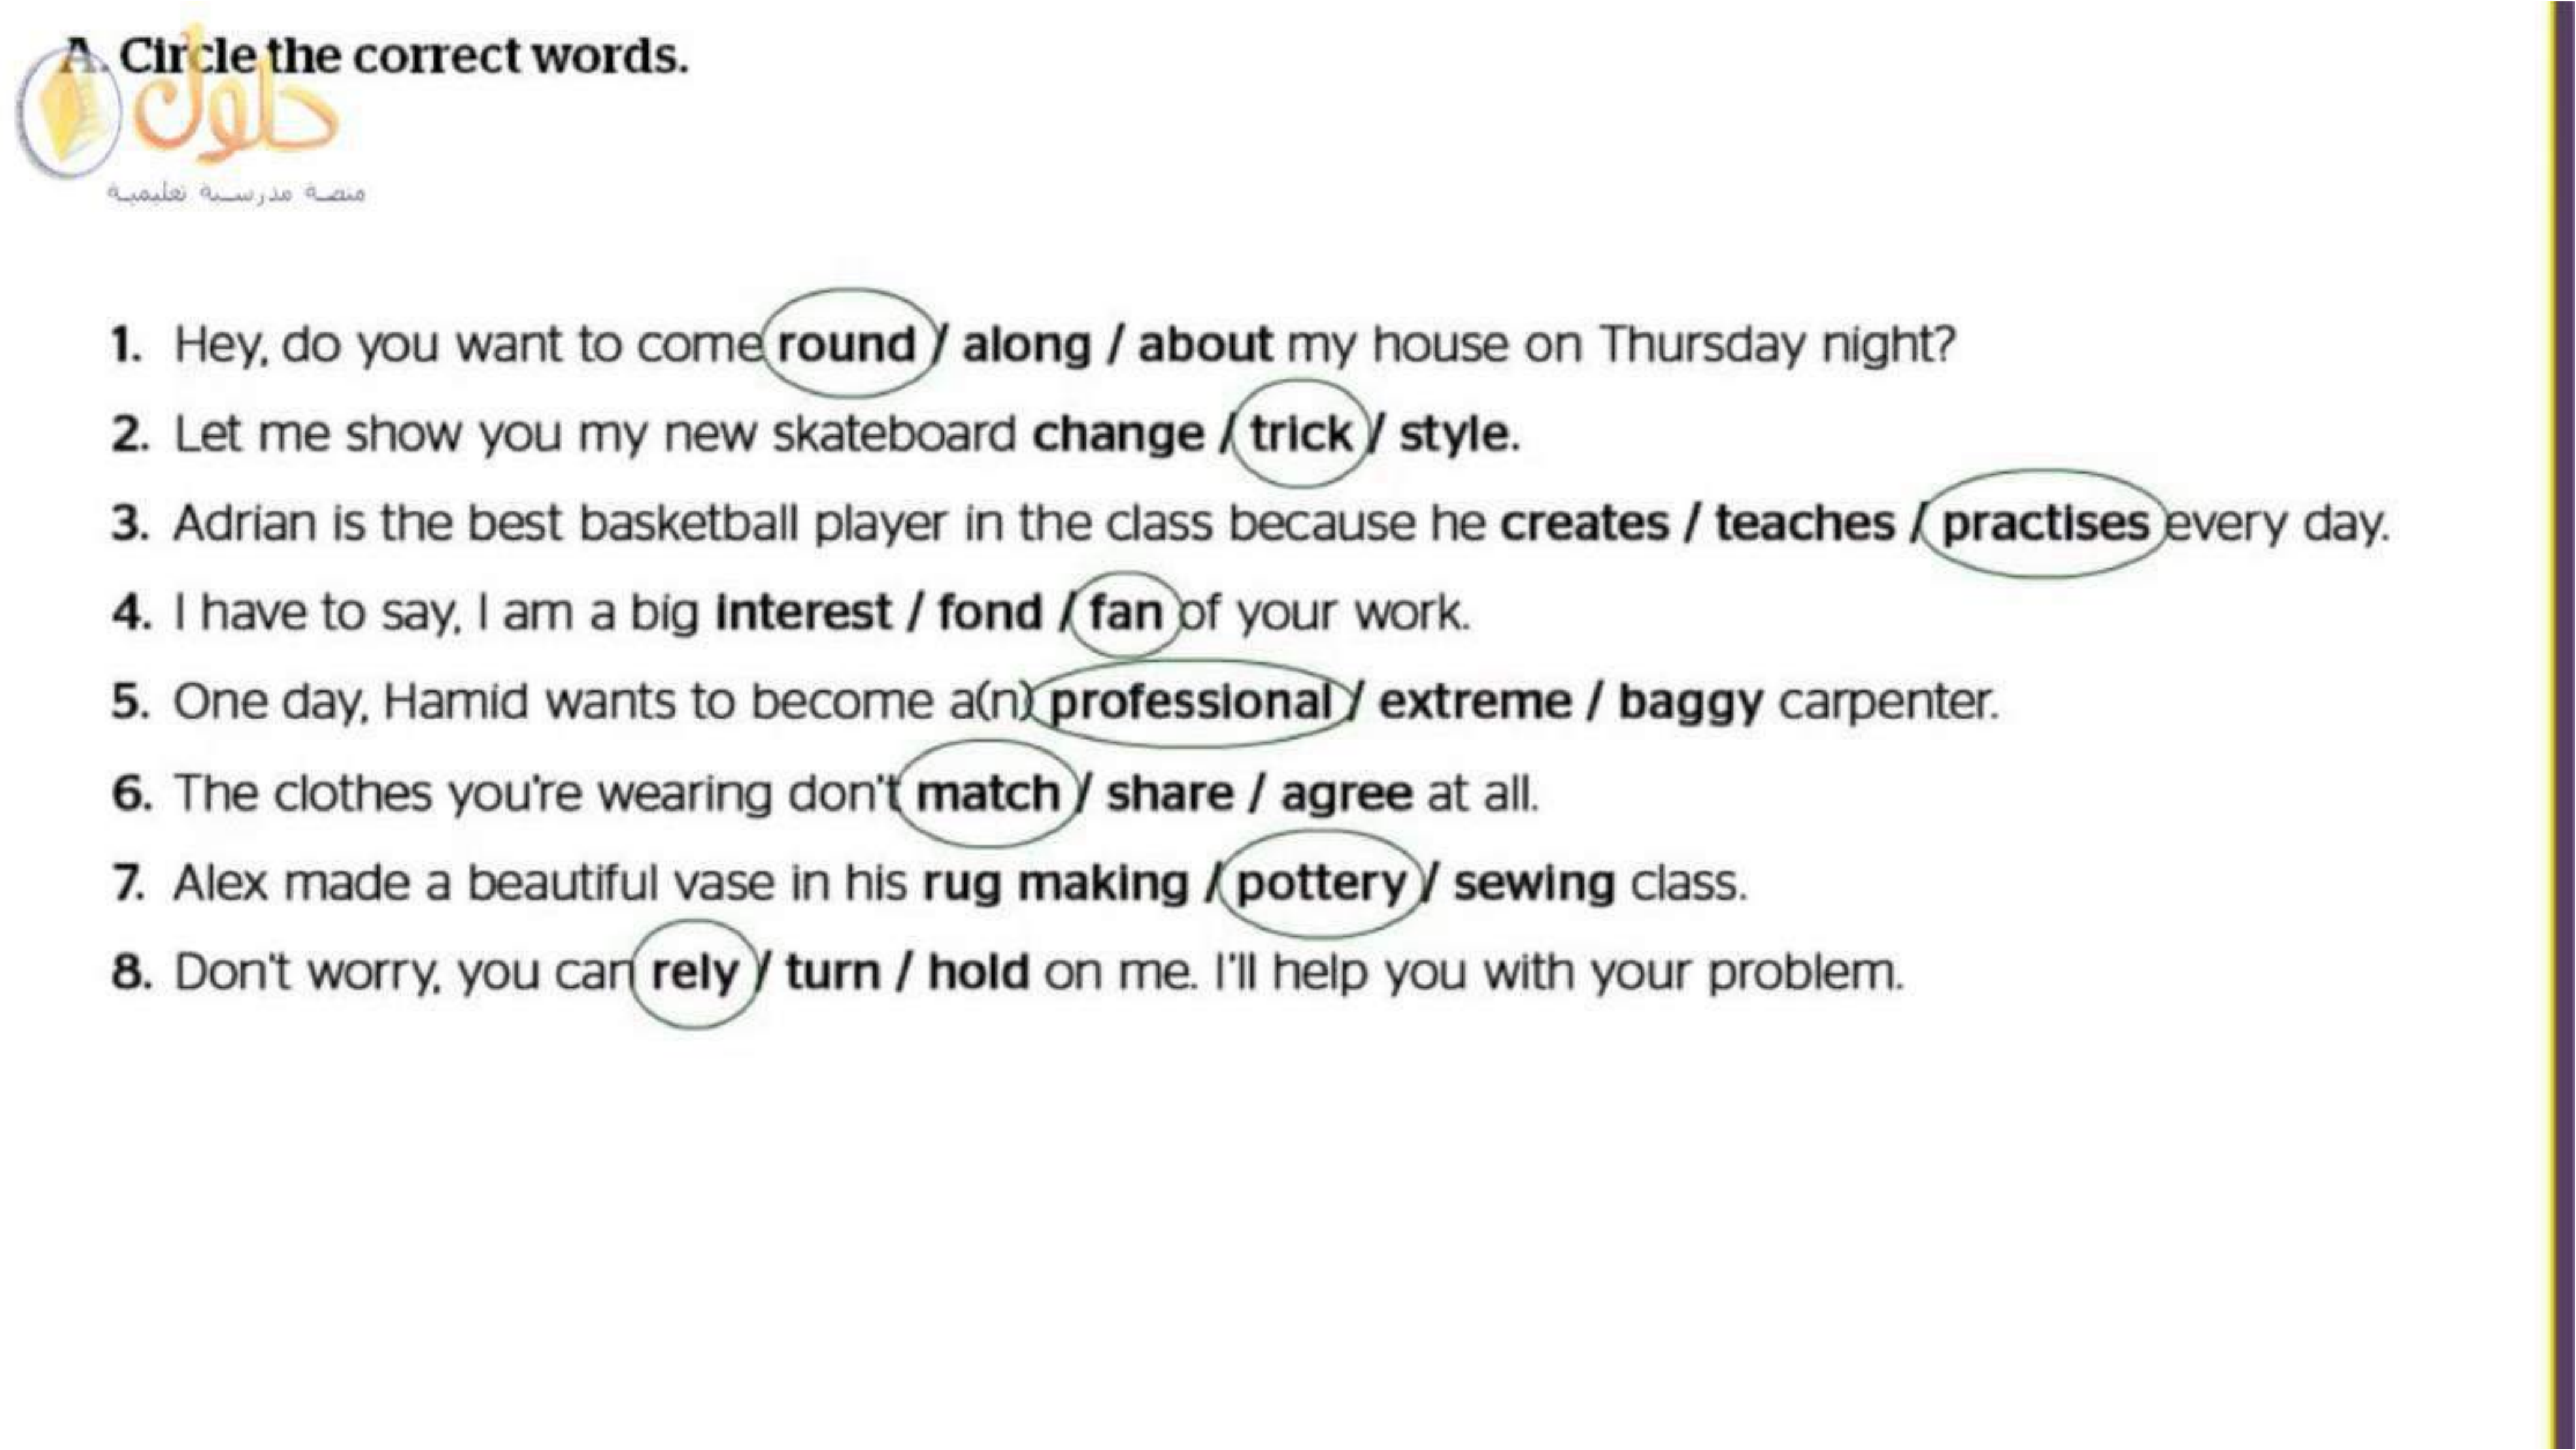 A. Circle the correct words.
حلول
منصة مدرسية تعليمية
1. Hey, do you want to come round / along / about my house on Thursday night?
2. Let me show you my new skateboard change / trick / style.
3. Adrian is the best basketball player in the class because he creates / teaches / practises every day.
4. I have to say, I am a big interest / fond / fan of your work.
5. One day, Hamid wants to become a(n) professional / extreme / baggy carpenter.
6. The clothes you're wearing don't match / share / agree at all.
7. Alex made a beautiful vase in his rug making / pottery / sewing class.
8. Don't worry, you can rely / turn / hold on me. I'll help you with your problem.